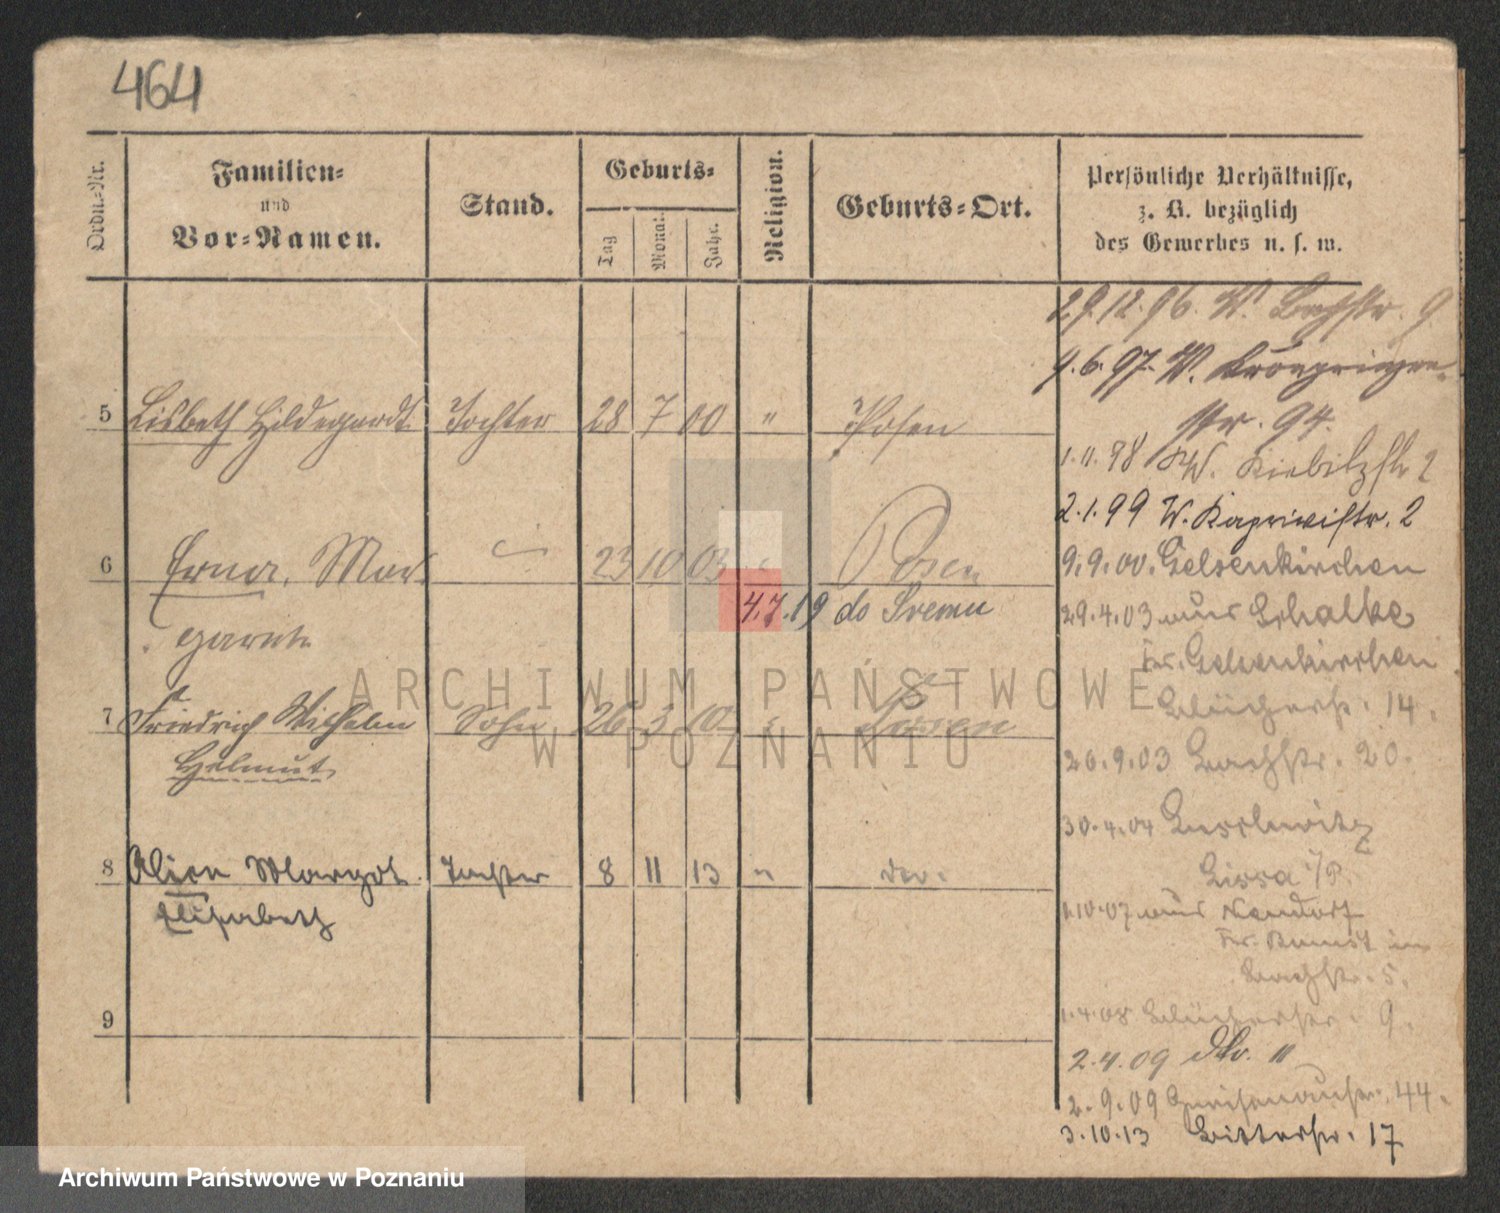 464
Ordn.-Nr.
Familien-
und
Vor-Namen.
Stand.
Geburts-
Tag
Monat.
Jahr.
Religion.
Geburts-Ort.
Persönliche Verhältnisse,
z. B. bezüglich
des Gewerbes u. s. w.
29.12.96. W. Bachstr. 9.
9.6.97. W. Kronprinzen-
str. 94.
5 Lisbeth Hildegardt Tochter 28 7 00 " Posen
1.11.98 W. Kiebitzstr 2
2.1.99 W. Kaprivistr. 2
6 Erna, Mar- 23 10 03 Posen
garete
9.9.00. Gelsenkirchen
4.7.19 do Sremu
29.4.03 aus Schalke
Kr. Gelsenkirchen
Blücherstr. 14.
7 Friedrich Wilhelm Sohn 26 3 10 " Posen
Helmut
26.9.03 Bachstr. 20.
30.4.04
Lissa i/P.
8 Alice Margot Tochter 8 11 13 " do.
Elisabeth
1.10.07 aus
Kr. Bomst in
Bachstr. 5.
9
1.4.08 Blücherstr. 9.
2.4.09 do. 11
2.9.09 Gneisenaustr. 44.
3.10.13 Bitterstr. 17
ARCHIWUM PAŃSTWOWE
W POZNANIU
Archiwum Państwowe w Poznaniu